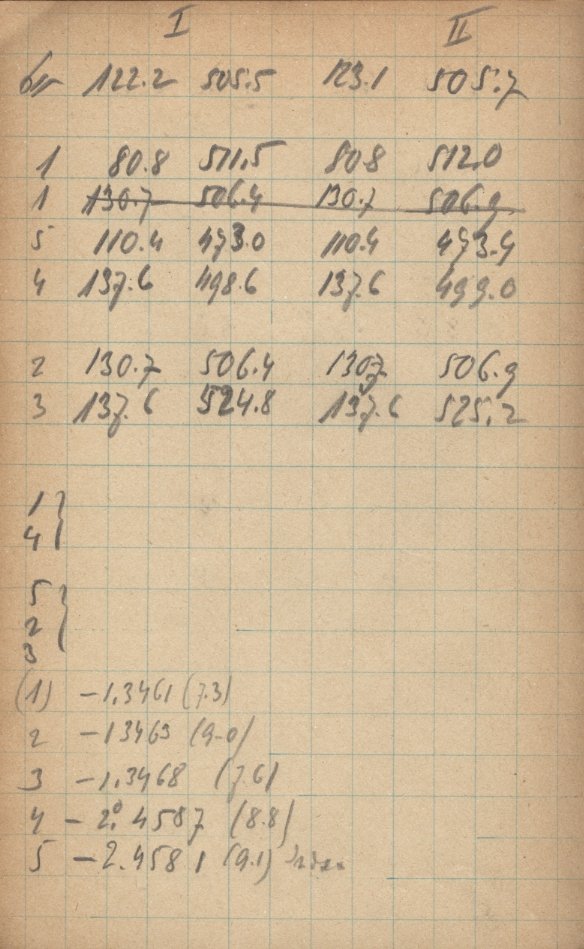 I II
122.2 505.5 123.1 505.7
1 80.8 511.5 80.8 512.0
1 130.7 506.4 130.7 506.9
5 110.4 473.0 110.4 473.4
4 137.6 498.6 137.6 499.0
2 130.7 506.4 130.7 506.9
3 137.6 524.8 137.6 525.2
1}
4
5}
2
3
(1) -1.3461 (7.3)
2 -13463 (9.0)
3 -1.3468 (7.6)
4 -2°.4587 (8.8)
5 -2.4581 (9.1)